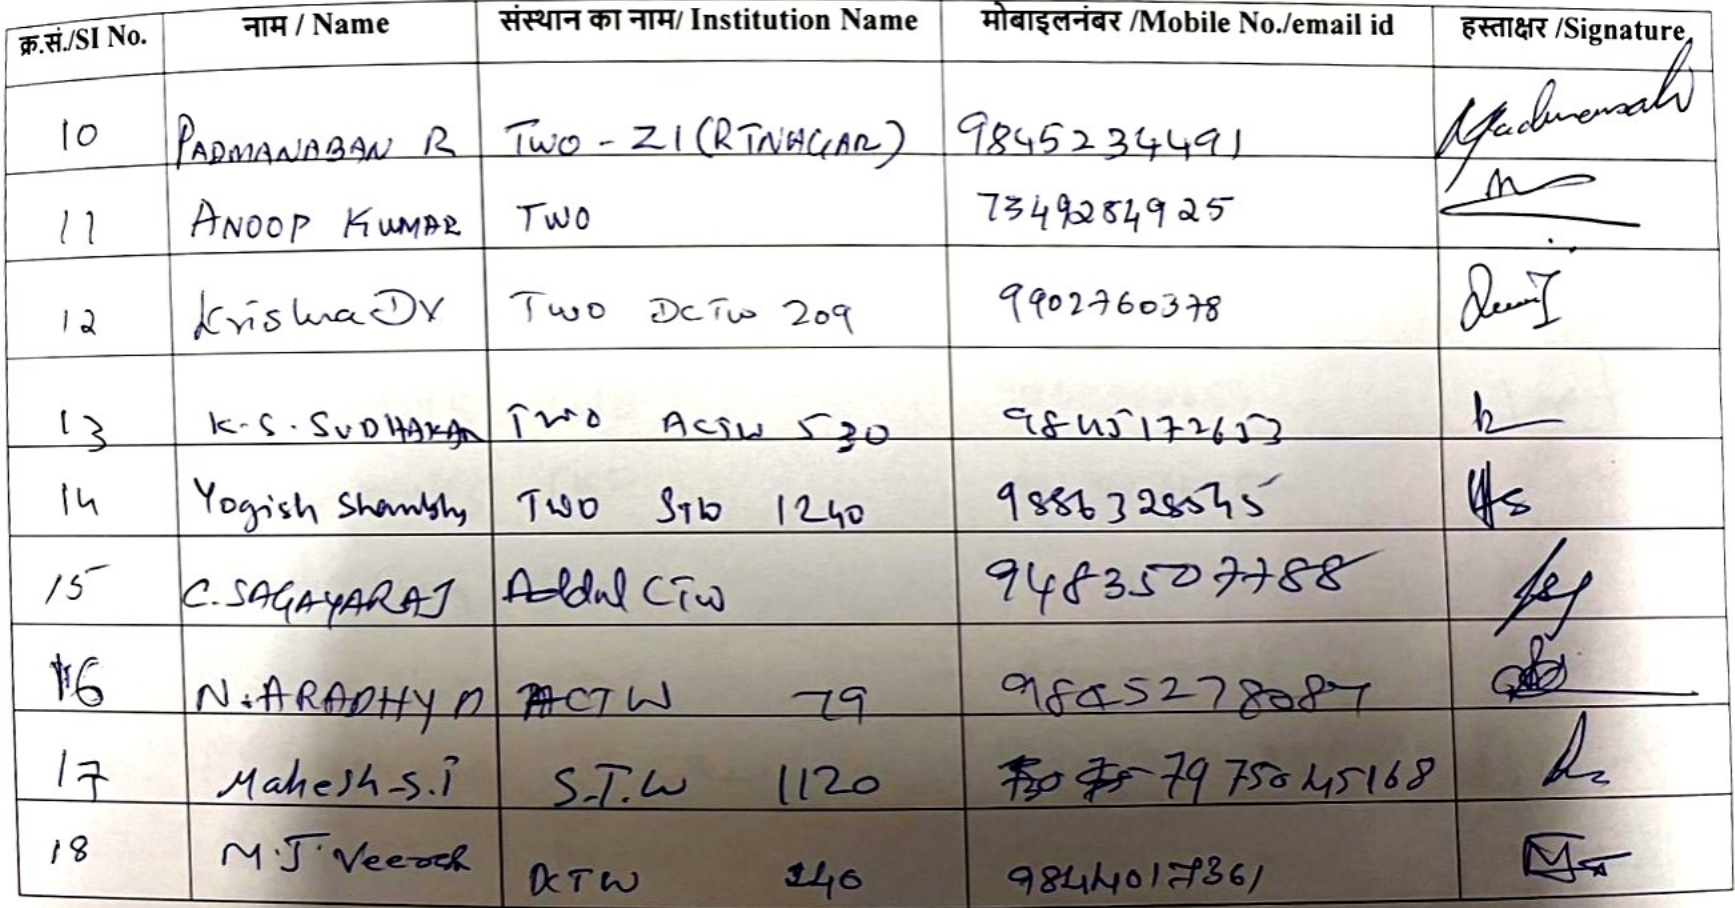 क्र.सं./SI No. नाम / Name संस्थान का नाम/ Institution Name मोबाइलनंबर /Mobile No./email id हस्ताक्षर /Signature
10 PADMANABAN R TWO - Z1 (RTNAGAR) 9845234491
11 ANOOP KUMAR TWO 7349284925
12 Krishna DV Two DCTW 209 9902760378
13 K.S. SUDHAKAR TWO ACTW 530 9845172653
14 Yogish TWO STW 1240 9886328545
15 C. SAGAYARAJ Addnl CTW 9483507788
16 N. ARADHYA ACTW 79 9845278087
17 Mahesh S.i S.T.W 1120 7975045168
18 M.J. DCTW 240 9844017361